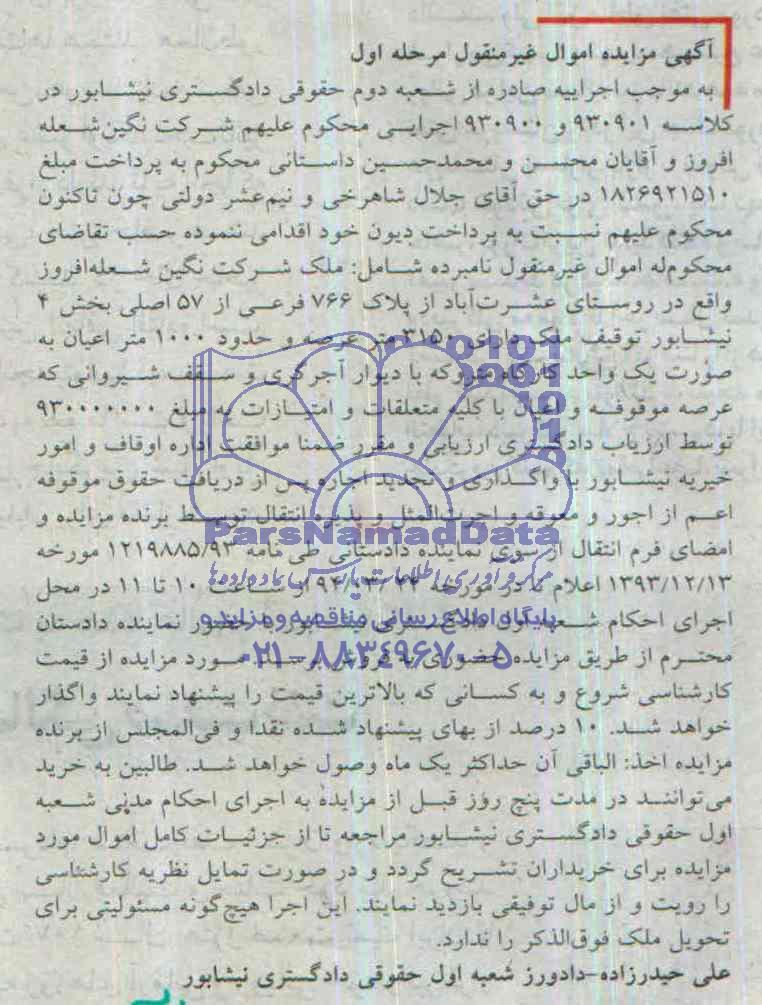 آگهی مزایده اموال غیرمنقول مرحله اول
به موجب اجراییه صادره از شعبه دوم حقوقی دادگستری نیشابور در
کلاسه ۹۳۰۹۰۱ و ۹۳۰۹۰۰ اجرایی محکوم علیهم شرکت نگین‌شعله
افروز و آقایان محسن و محمدحسین داستانی محکوم به پرداخت مبلغ
۱۸۲۶۹۲۱۵۱۰ در حق آقای جلال شاهرخی و نیم‌عشر دولتی چون تاکنون
محکوم علیهم نسبت به پرداخت دیون خود اقدامی ننموده حسب تقاضای
محکوم‌له اموال غیرمنقول نامبرده شامل: ملک شرکت نگین شعله‌افروز
واقع در روستای عشرت‌آباد از پلاک ۷۶۶ فرعی از ۵۷ اصلی بخش ۴
نیشابور توقیف ملک دارای ۳۱۵۰ متر عرصه و حدود ۱۰۰۰ متر اعیان به
صورت یک واحد کارگاه متروکه با دیوار آجر کری و سقف شیروانی که
عرصه موقوفه و اعیان با کلیه متعلقات و امتیازات به مبلغ ۹۳۰۰۰۰۰۰۰
توسط ارزیاب دادگستری ارزیابی و مقرر ضمنا موافقت اداره اوقاف و امور
خیریه نیشابور با واگذاری و تجدید اجاره پس از دریافت حقوق موقوفه
اعم از اجور و معوقه و اجرت‌المثل و پذیره انتقال توسط برنده مزایده و
امضای فرم انتقال از سوی نماینده دادستانی طی نامه ۱۲۱۹۸۸۵/۹۳ مورخه
۱۳۹۳/۱۲/۱۳ اعلام تا در مورخه ساعت ۱۰ تا ۱۱ در محل
اجرای احکام شعبه اول دادگستری نیشابور با حضور نماینده دادستان
محترم از طریق مزایده حضوری به فروش برسد. مورد مزایده از قیمت
کارشناسی شروع و به کسانی که بالاترین قیمت را پیشنهاد نمایند واگذار
خواهد شد. ۱۰ درصد از بهای پیشنهاد شده نقدا و فی‌المجلس از برنده
مزایده اخذ: الباقی آن حداکثر یک ماه وصول خواهد شد. طالبین به خرید
می‌توانند در مدت پنج روز قبل از مزایده به اجرای احکام مدنی شعبه
اول حقوقی دادگستری نیشابور مراجعه تا از جزئیات کامل اموال مورد
مزایده برای خریداران تشریح گردد و در صورت تمایل نظریه کارشناسی
را رویت و از مال توقیفی بازدید نمایند. این اجرا هیچ‌گونه مسئولیتی برای
تحویل ملک فوق‌الذکر را ندارد.
علی حیدرزاده-دادورز شعبه اول حقوقی دادگستری نیشابور
ParsNamadData
مرکز فرآوری اطلاعات پارس نماد داده‌ها
پایگاه اطلاع رسانی مناقصه و مزایده
۰۲۱-۸۸۳۴۹۶۷۰-۵